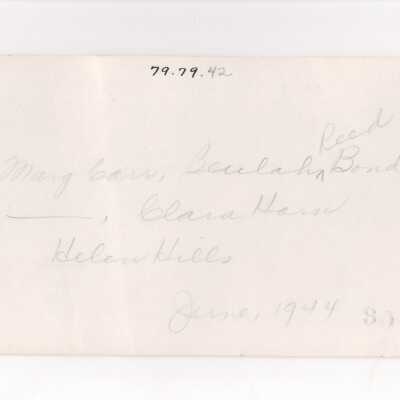 79.79.42
Reed
Mary Carr, Beulah ^ Bond
———, Clara Horn
Helen Hills
June, 1944